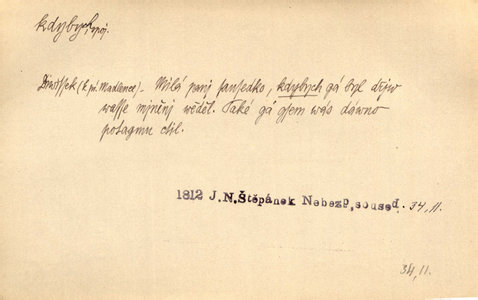 kdybych, spoj.
(k pí Madlence) – Milá paní sausedko, kdybych gá byl dřjw
wasse mjněnj wěděl. Také gá gsem wás dáwno
potagmu ctil.
1812 J.N.Štěpánek Nebezp,soused. 34, 11.
34, 11.